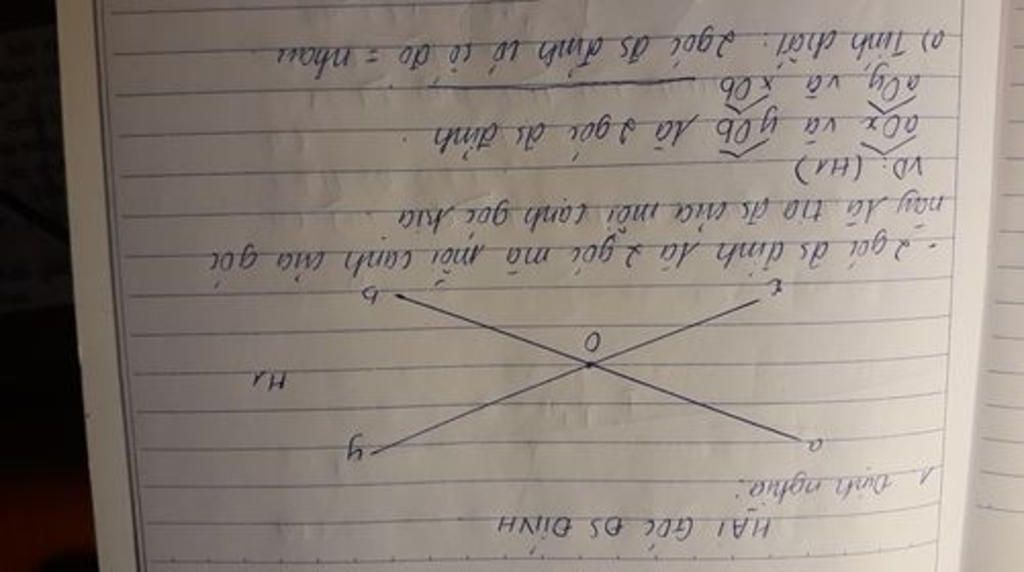 HAI GÓC ĐS ĐỈNH
1. Định nghĩa:
a
y
H1
O
x
b
- 2 góc đs đỉnh là 2 góc mà mỗi cạnh của góc
này là tia đs của mỗi cạnh góc kia
VD: (H1)
aOx và yOb là 2 góc đs đỉnh.
aOy và xOb
a) Tính chất: 2 góc đs đỉnh có số đo = nhau